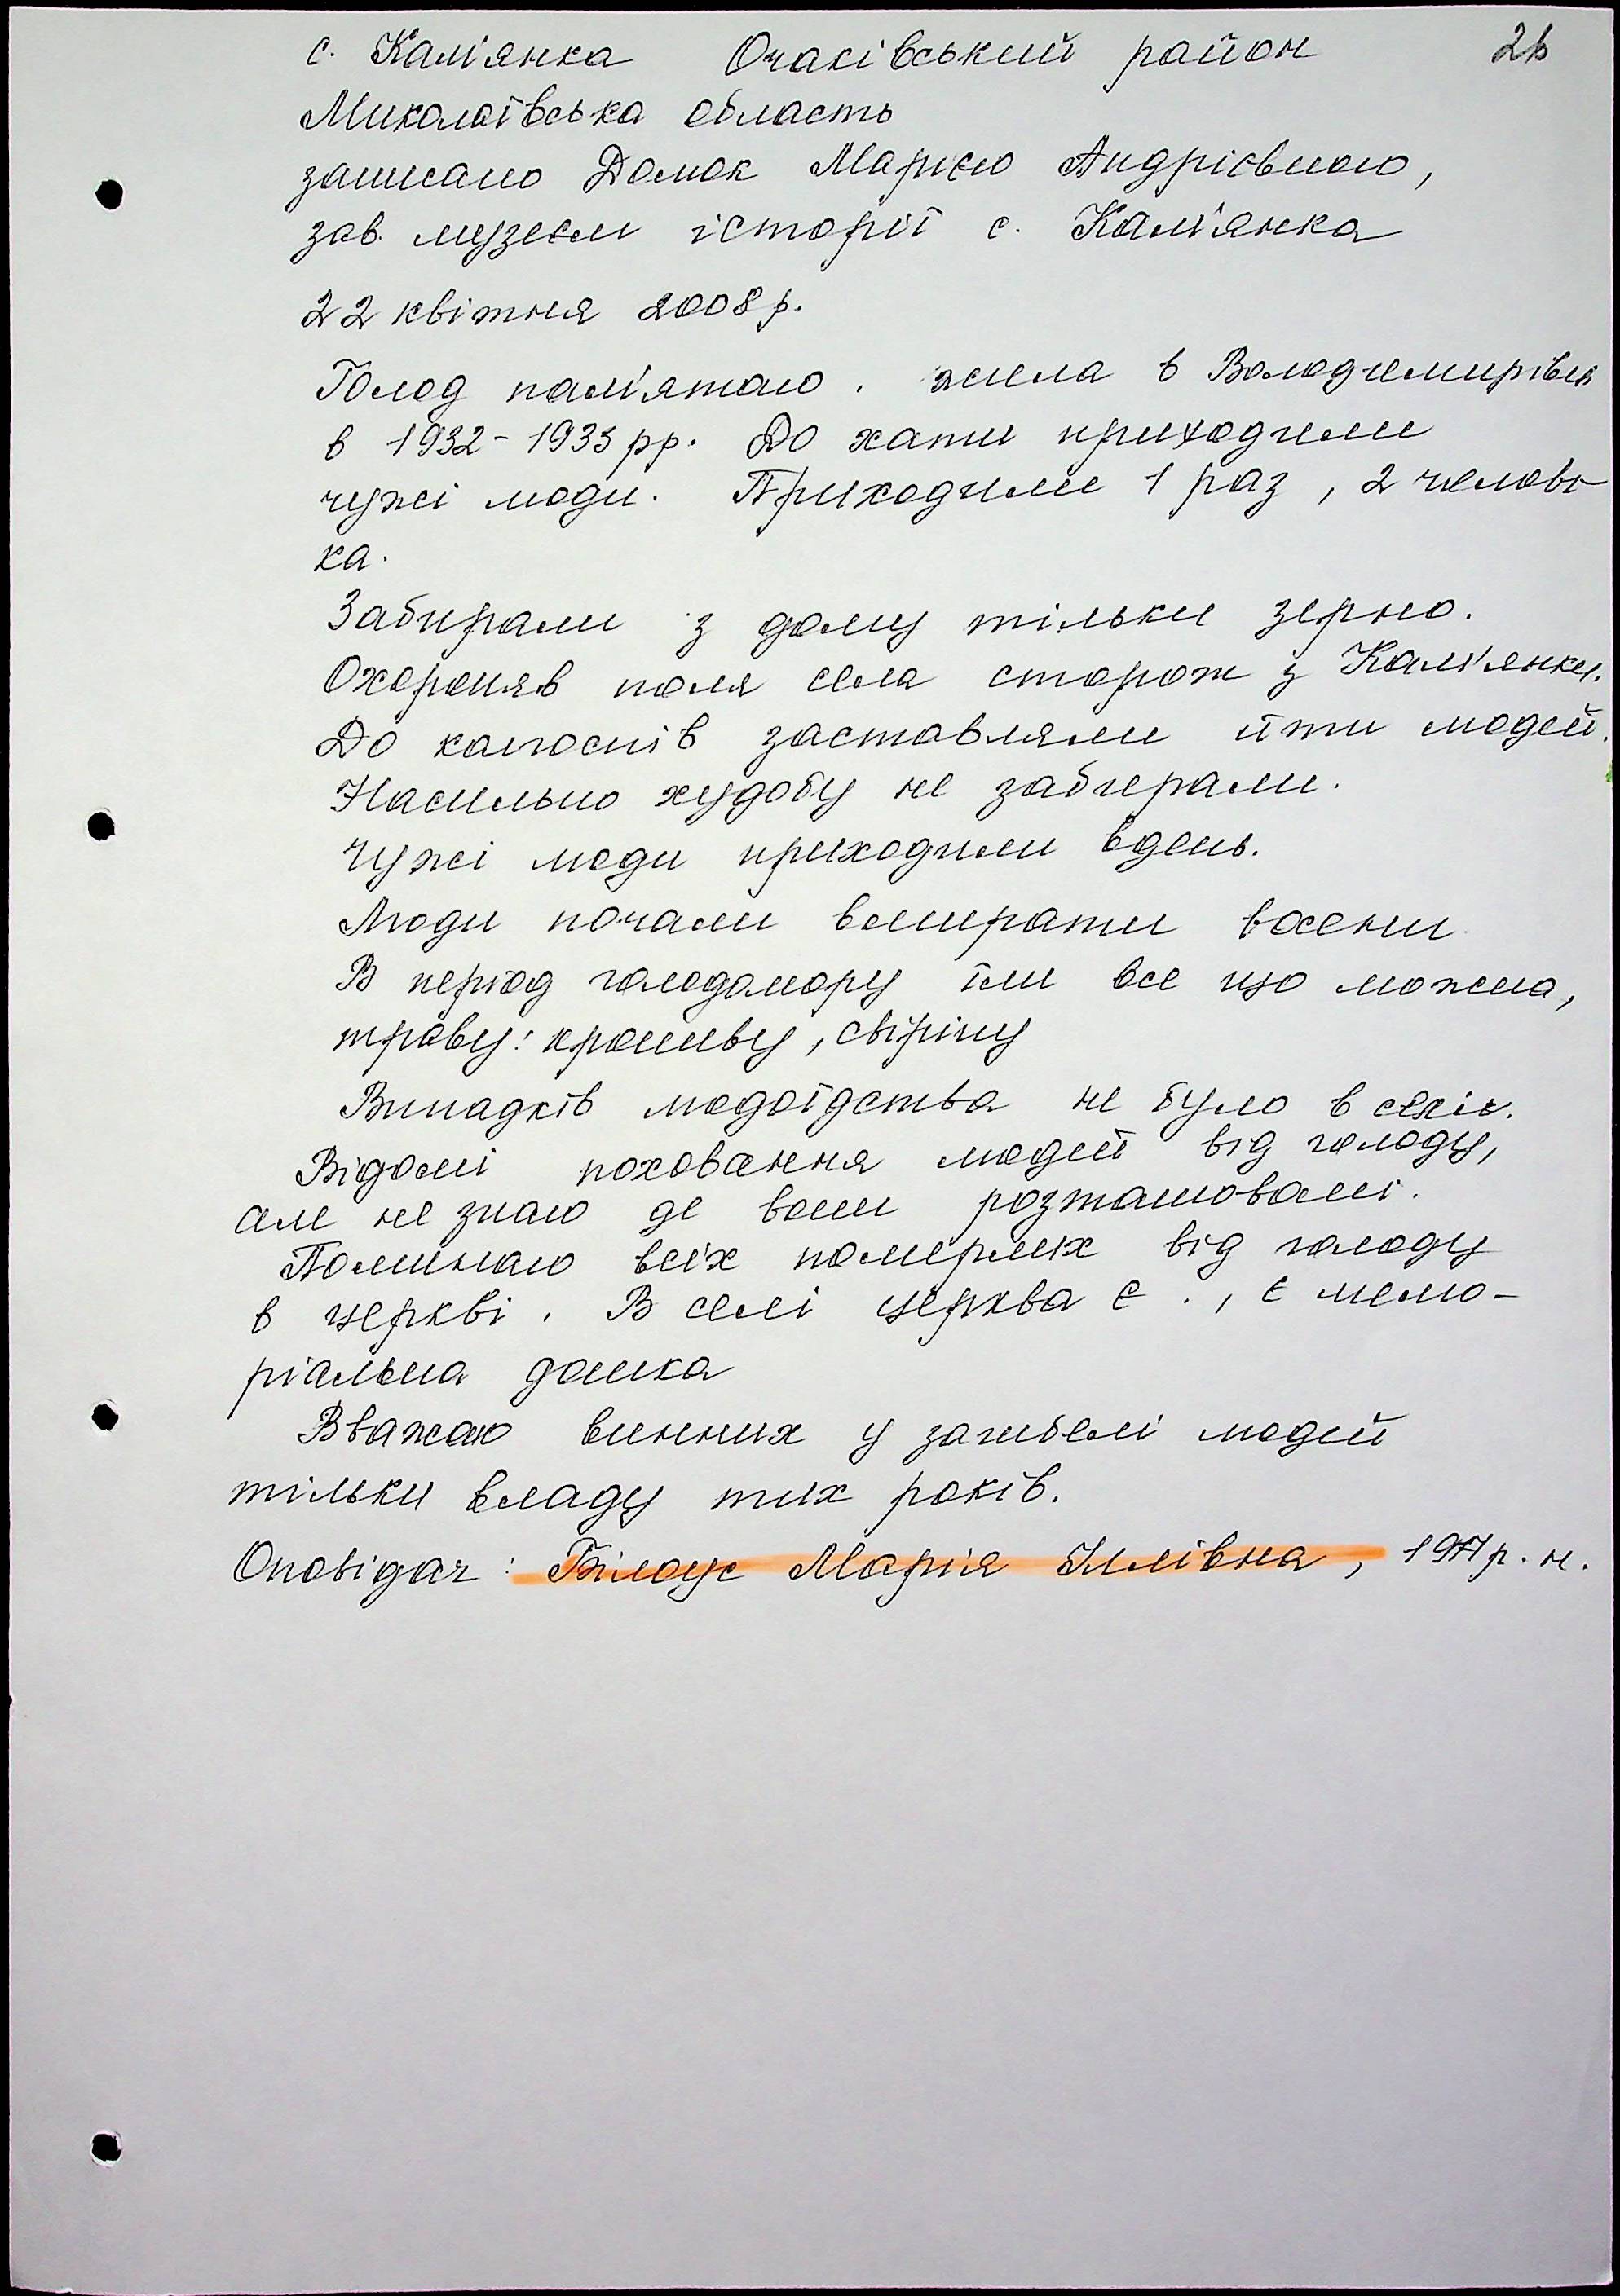 с. Кам'янка Очаківський район
Миколаївська область
записано Домок Марією Андріївною,
зав. музеєм історії с. Кам'янка
22 квітня 2008 р.
Голод пам'ятаю. жила в Володимирівці
в 1932-1933 рр. До хати приходили
чужі люди. Приходили 1 раз, 2 челове-
ка.
Забирали з дому тільки зерно.
Охороняв поля села сторож з Кам'янки.
До колгоспів заставляли йти людей.
Насильно худобу не забирали.
Чужі люди приходили вдень.
Люди почали вмирати восени
В період голодомору їли все що можна,
траву: кропиву, свіріпу
Випадків людоїдства не було в селі.
Відомі поховання людей від голоду,
але не знаю де вони розташовані.
Поминаю всіх померлих від голоду
в церкві. В селі церква є., є мемо-
ріальна дошка
Вважаю винних у загибелі людей
тільки владу тих років.
Оповідач: Білоус Марія Іллівна, р. н.